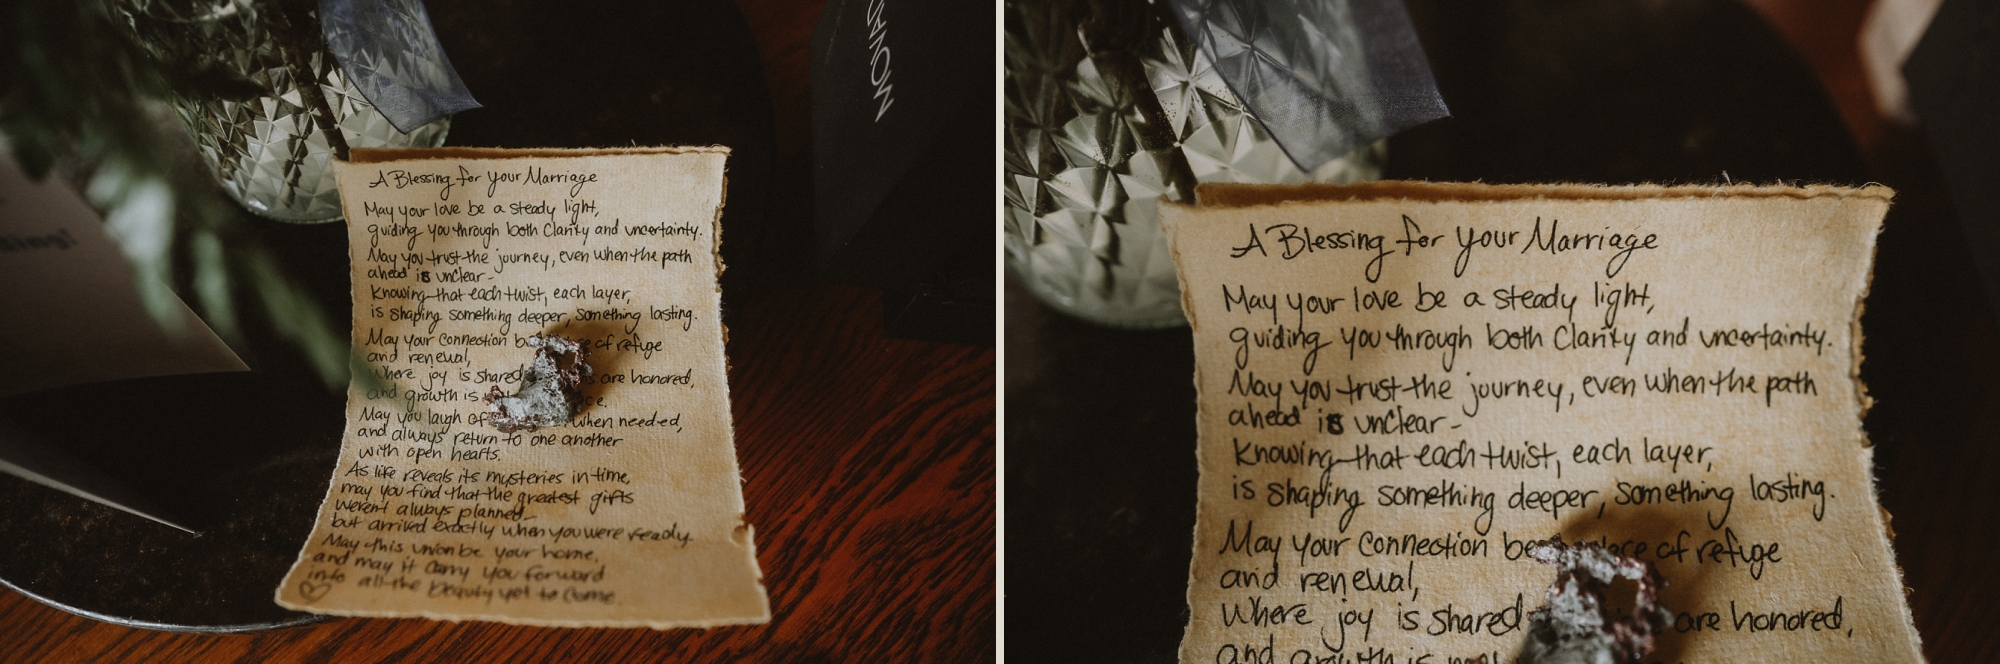 A Blessing for Your Marriage
May your love be a steady light,
guiding you through both Clarity and uncertainty.
May you trust the journey, even when the path
ahead is unclear-
Knowing that each twist, each layer,
is shaping something deeper, something lasting.
May your connection be of refuge
and renewal,
Where joy is shared are honored,
and growth is
May you laugh when needed,
and always return to one another
with open hearts.
As life reveals its mysteries in time,
may you find that the greatest gifts
weren't always planned-
but arrived exactly when you were ready.
May this union be your home,
and may it carry you forward
into all the beauty yet to come.
A Blessing for Your Marriage
May your love be a steady light,
guiding you through both Clarity and uncertainty.
May you trust the journey, even when the path
ahead is unclear-
Knowing that each twist, each layer,
is shaping something deeper, something lasting.
May your connection be place of refuge
and renewal,
Where joy is shared are honored,
and growth is